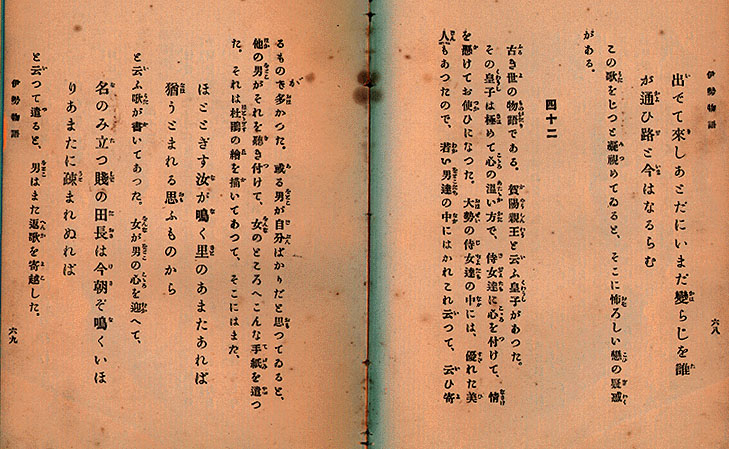 伊勢物語
六八
出でて來しあとだにいまだ變らじを誰
が通ひ路と今はなるらむ
この歌をじつと凝視めてゐると、そこに怖ろしい戀の疑惑
がある。
四十二
古き世の物語である。賀陽親王と云ふ皇子があつた。
その皇子は極めて心の温い方で、侍女達に心を付けて、情
を懸けてお使ひになつた。大勢の侍女達の中には、優れた美
人もあつたので、若い男達の中にはかれこれ云つて、云ひ寄
るものが多かつた。或る男が自分ばかりだと思つてゐると、
他の男がそれを聽き付けて、女のところへこんな手紙を遣つ
た。それは杜鵑の繪を描いてあつて、そこにはまた、
ほととぎす汝が鳴く里のあまたあれば
猶うとまれる思ふものから
と云ふ歌が書いてあつた。女が男の心を迎へて、
名のみ立つ賤の田長は今朝ぞ鳴くいほ
りあまたに疎まれぬれば
と云つて遣ると、男はまた返歌を寄越した。
伊勢物語
六九